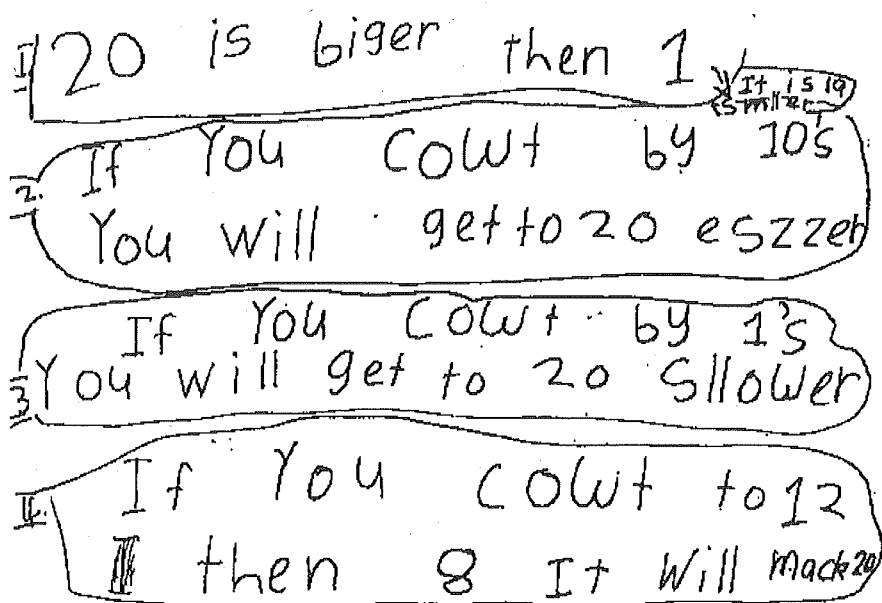 1 20 is biger then 1 It is 19
smller
If You Cowt by 10's
2. You will get to 20 eszzer
If You Cowt by 1's
3 You will get to 20 Sllower
4. If You Cowt to 12
then 8 It will mack 20